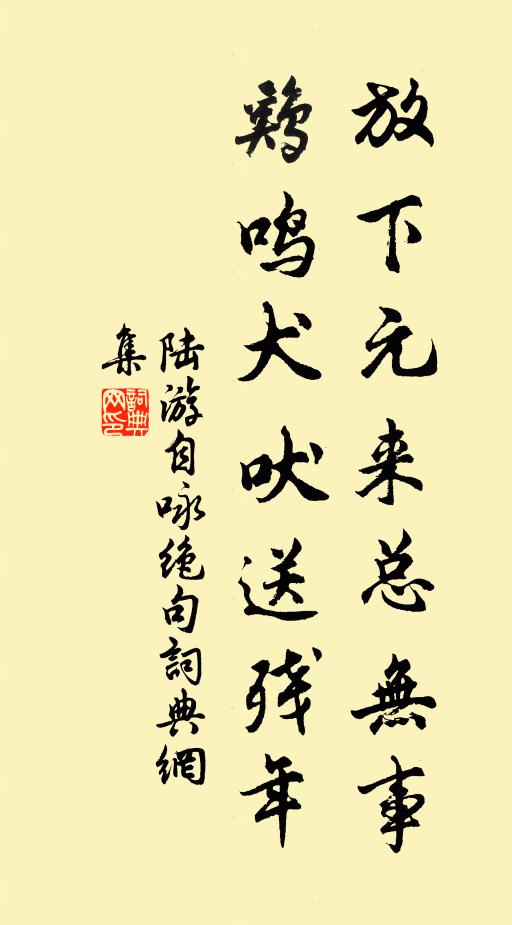 放下元来总無事
鷄鸣犬吠送残年
陆游自咏绝句詞典網
集
詞典
网印